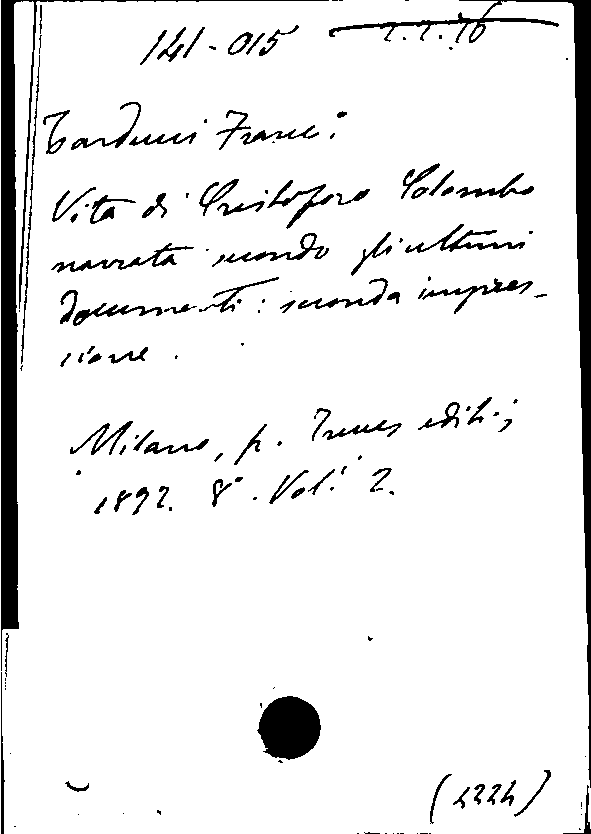 141-015 2.2.76
Tarducci Franc:
Vita di Cristoforo Colombo
narrata secondo gli ultimi
documenti: seconda impres-
sione.
Milano, fr. Treves edit.i
1892. 8° Vol.i 2.
(4224)